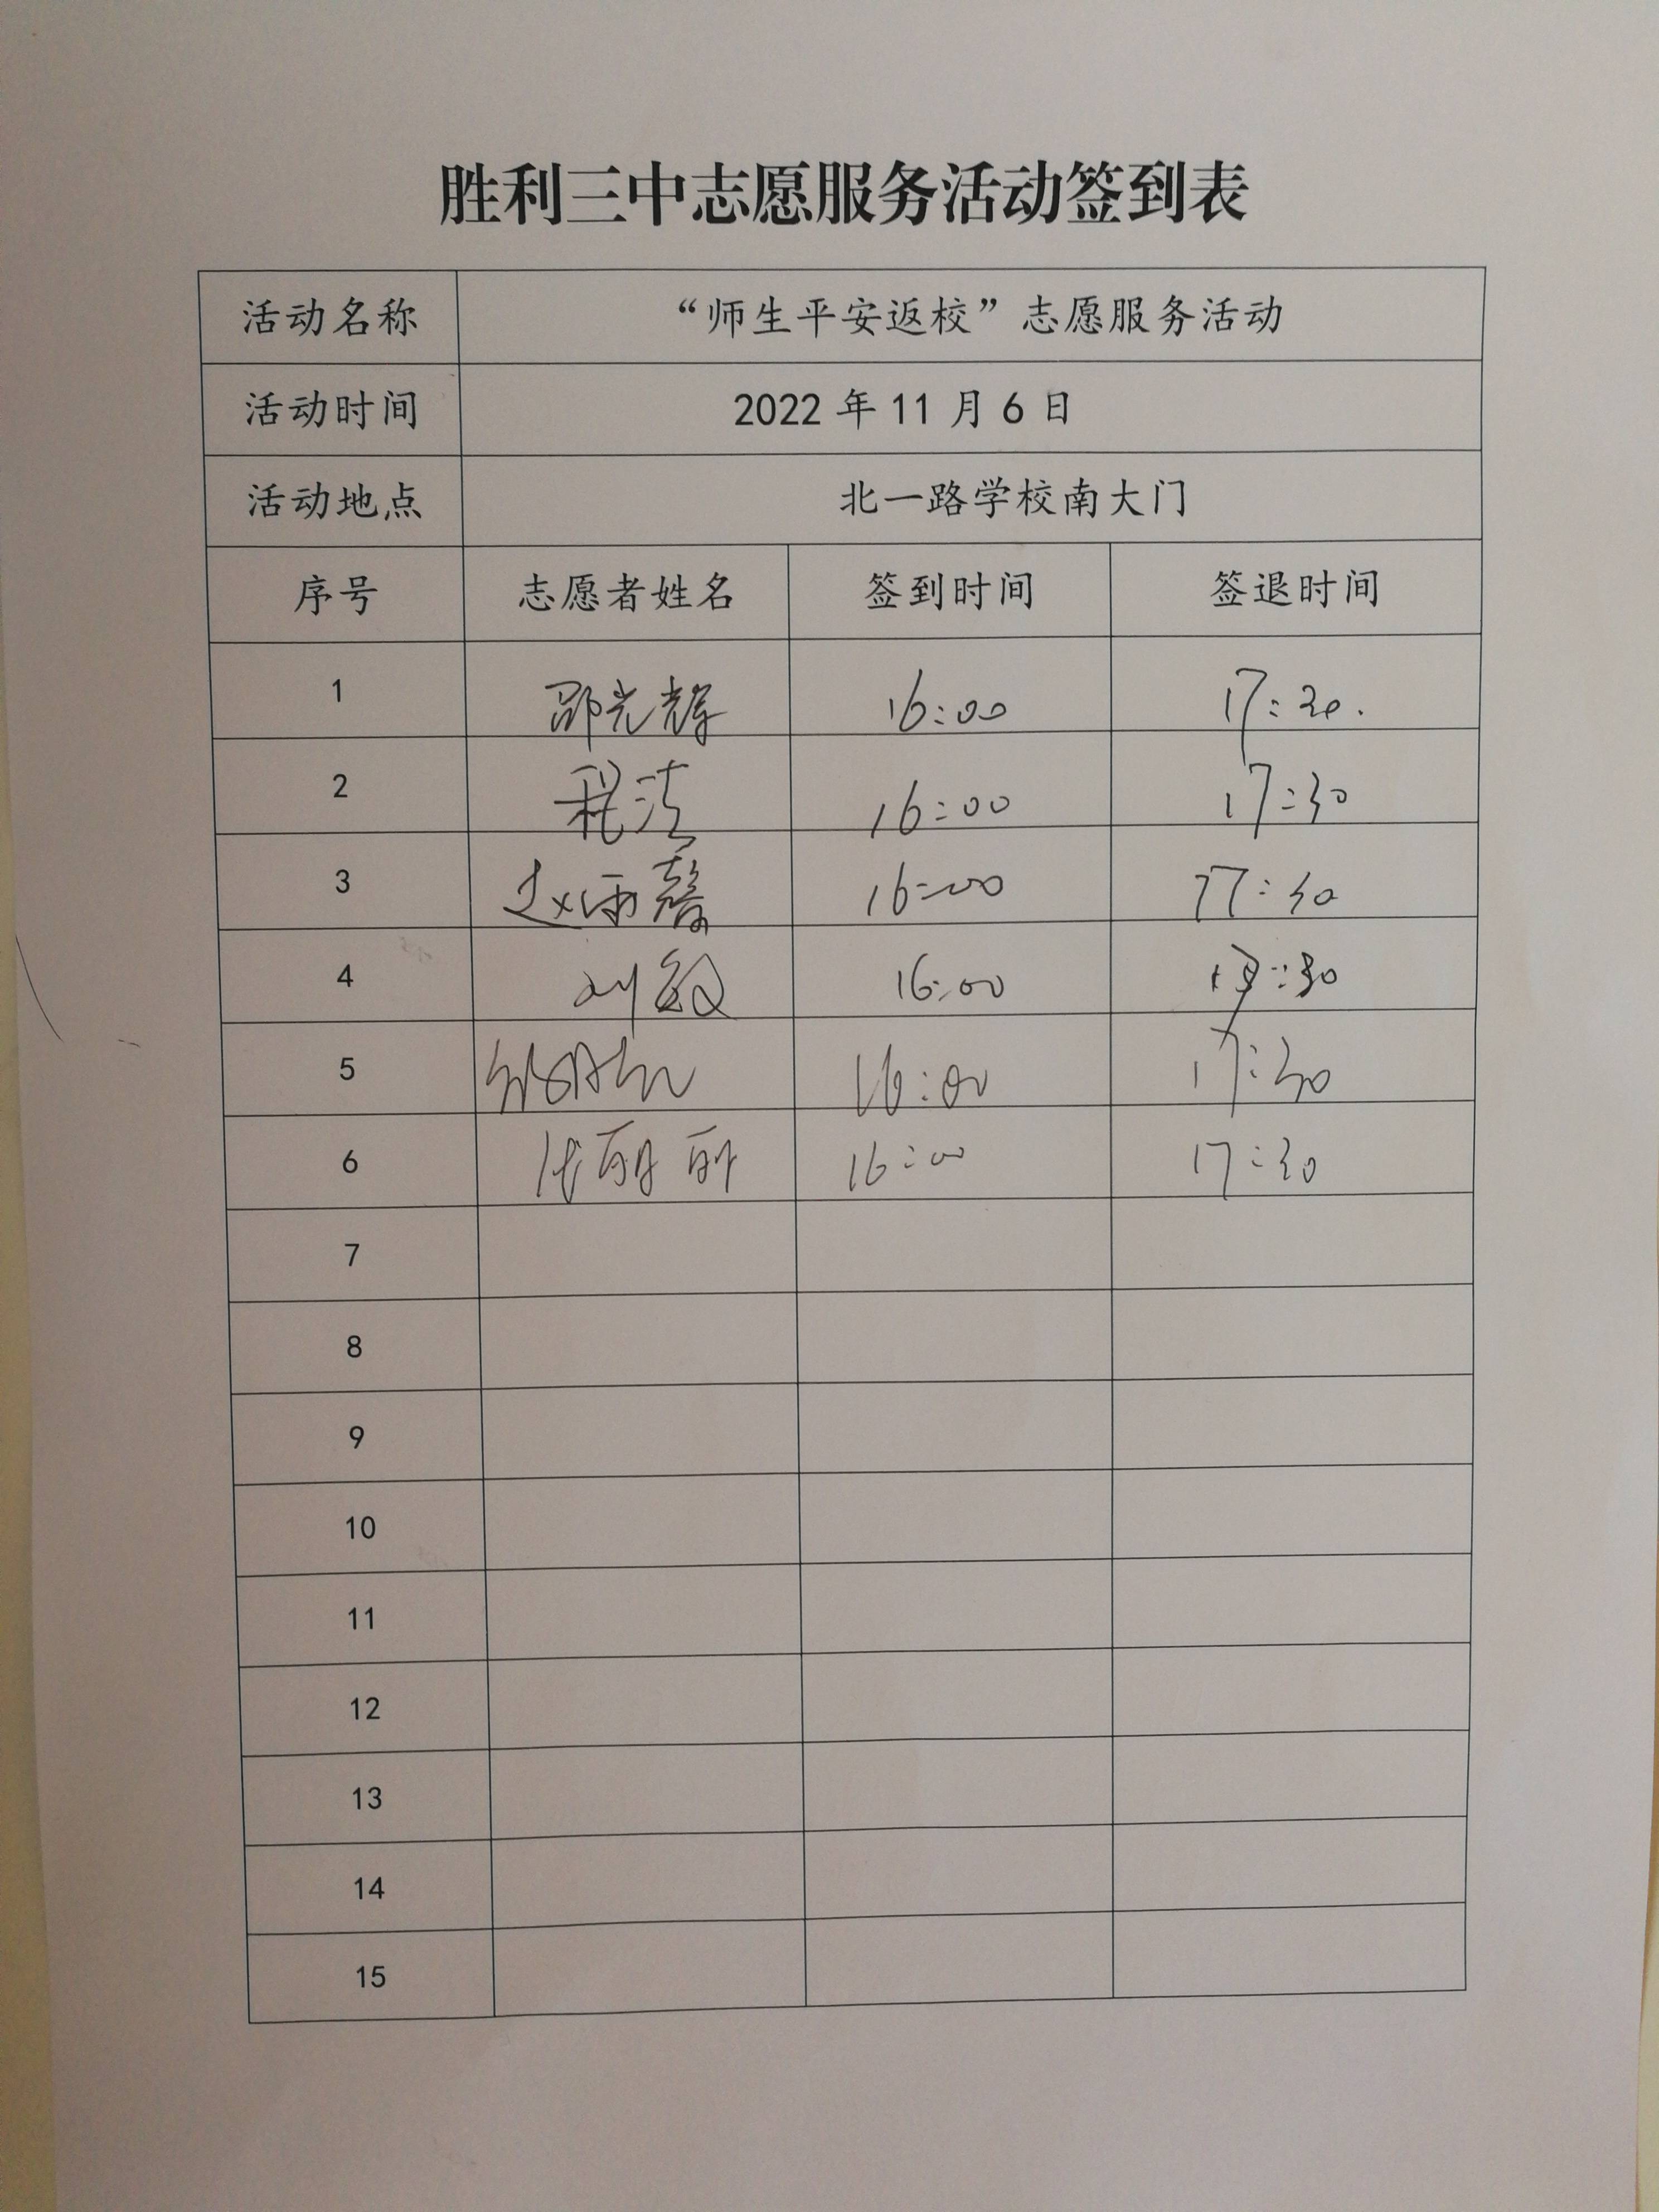 胜利三中志愿服务活动签到表
活动名称 “师生平安返校”志愿服务活动
活动时间 2022年11月6日
活动地点 北一路学校南大门
序号 志愿者姓名 签到时间 签退时间
1 邵光辉 16:00 17:30.
2 程洁 16:00 17:30
3 赵雨馨 16:00 17:30
4 刘敏 16:00 17:30
5 16:00 17:30
6 张丽丽 16:00 17:30
7
8
9
10
11
12
13
14
15